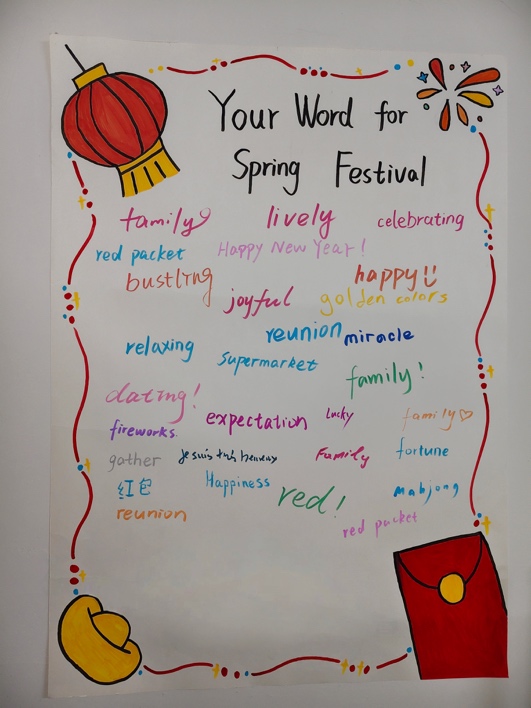 Your Word for
Spring Festival
family lively celebrating
red packet Happy New Year!
bustling happy
joyful golden colors
relaxing reunion miracle
supermarket
family!
dating!
fireworks. expectation Lucky family
gather Je suis très heureux Family fortune
红包 Happiness red! mahjong
reunion red packet